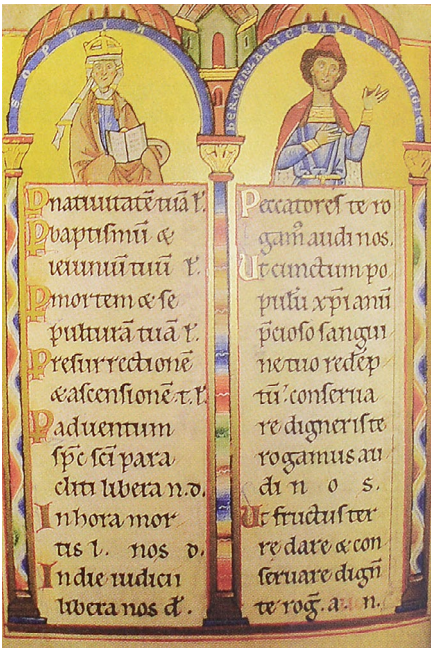 SOPHIA
HERMAN LANTGRAVIVS TVRINGIE
P nativitatē tuā l'.
P baptismū &
ieiuniū tuū l'.
P mortem & se
pulturā tuā l'.
P resurrectionē
& ascensionē t. l'.
P adventum
spc̄ scī para
cliti libera n. d.
In hora mor
tis l. nos d.
In die iudicii
libera nos d̄.
Peccatores te ro
gam̄ audi nos.
Ut cunctum po
pulū xp̄ianū
p̄cioso sangui
ne tuo redēp
tū conserva
re digneris te
rogamus au
di n o s.
Ut fructus ter
re dare & con
servare dign̄
te roḡ. a. n.